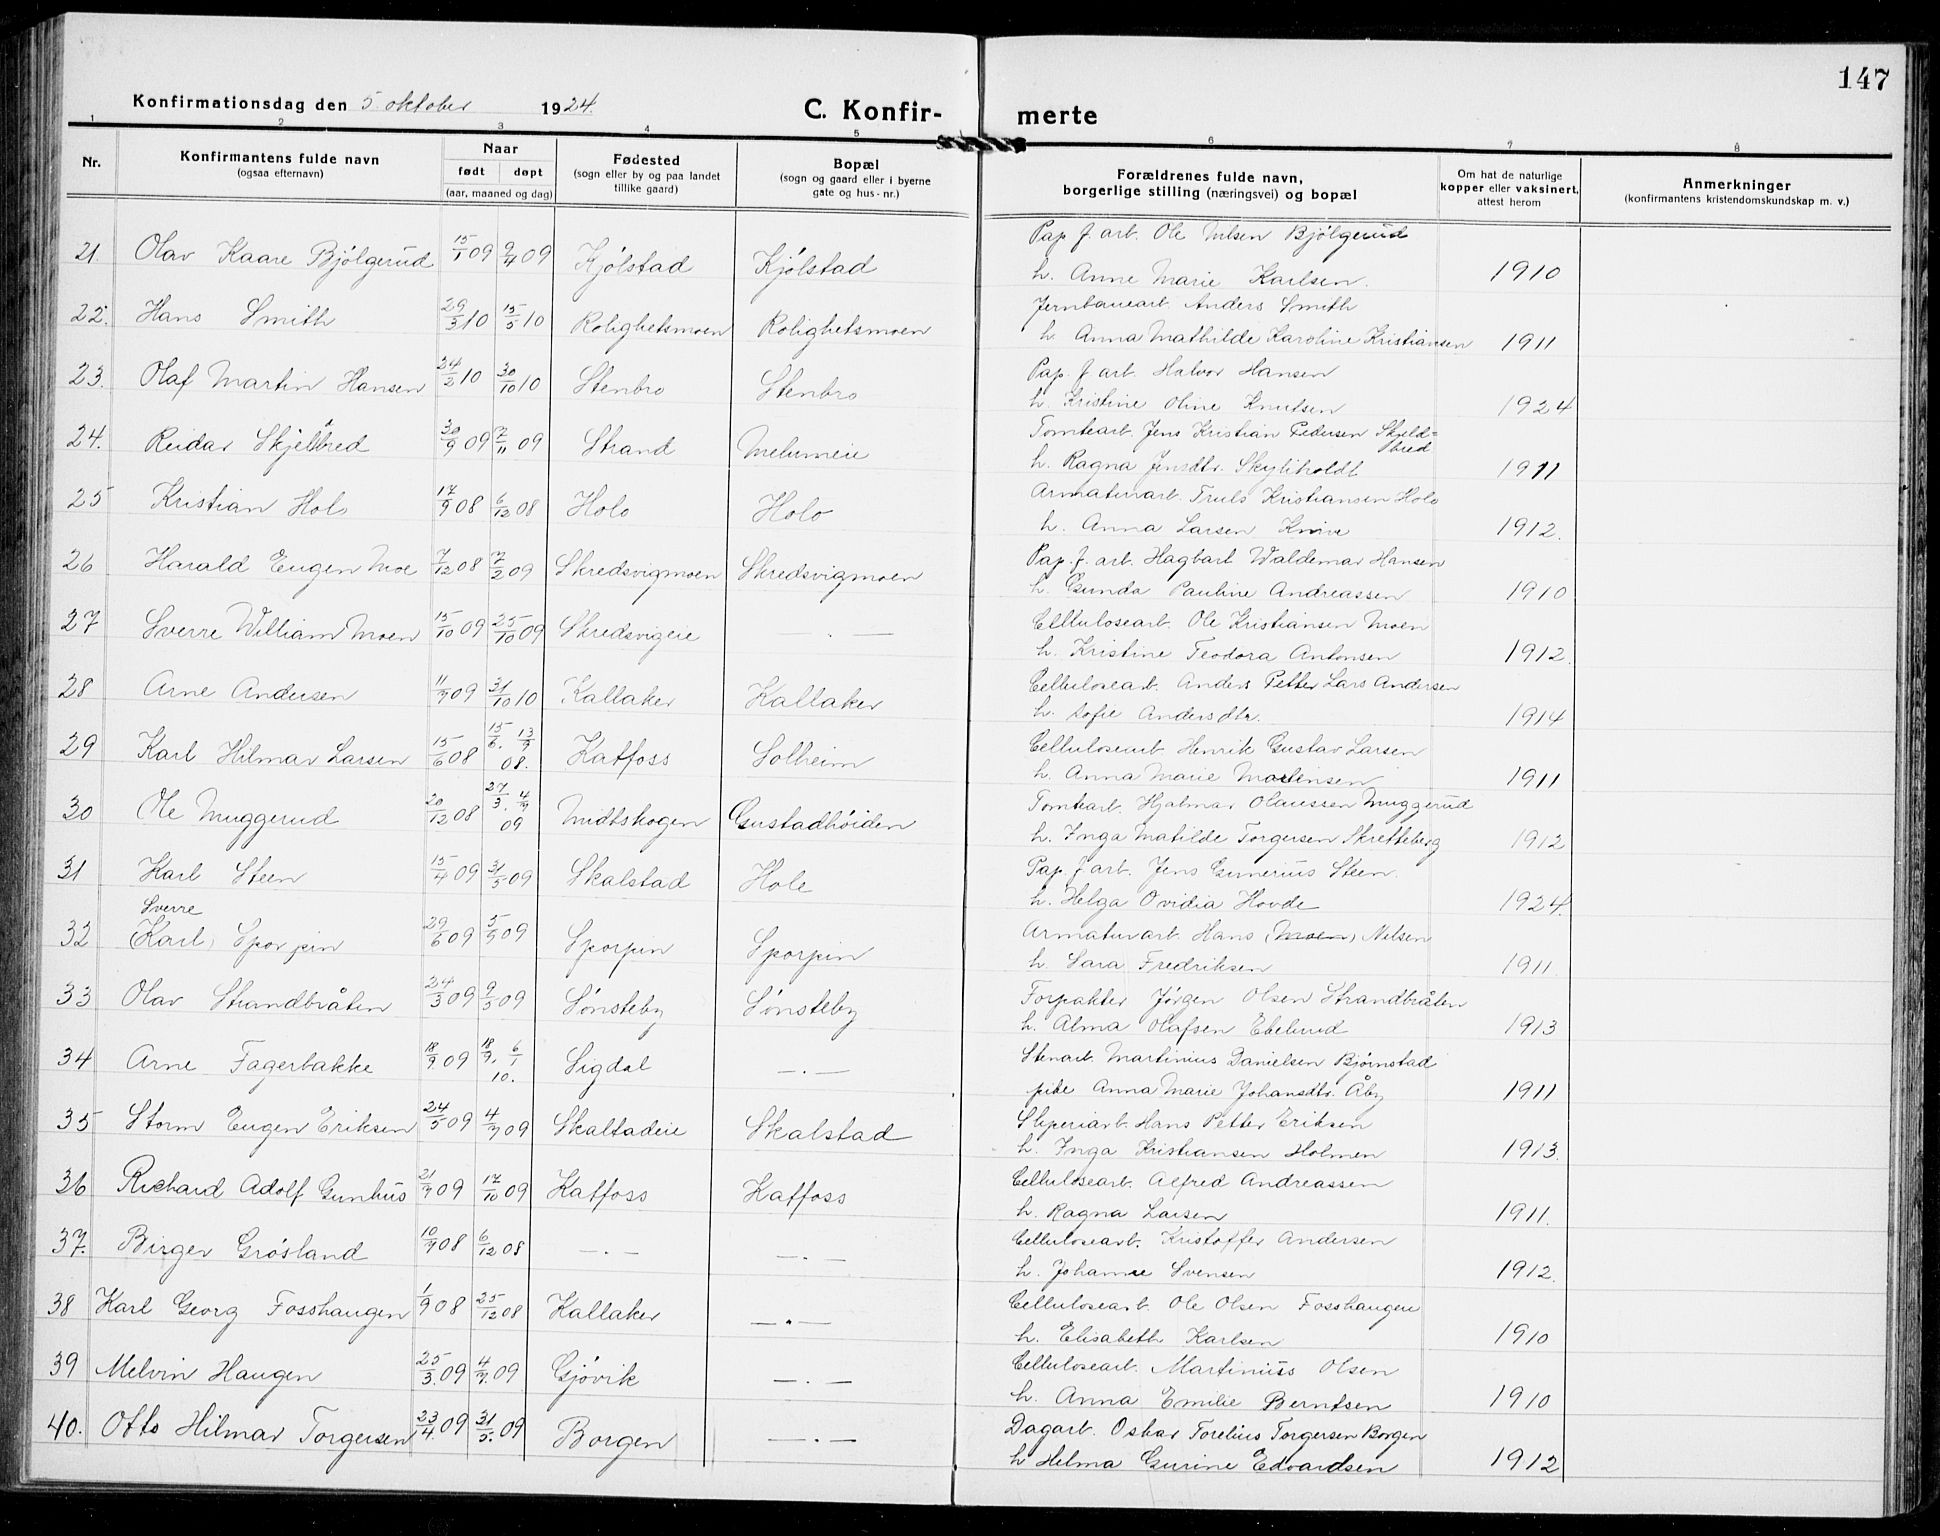 147
Konfirmationsdag den 5. oktober 1924.
C. Konfir- merte
1 2 3 4 5 6 7 8
Nr.
Konfirmantens fulde navn
(ogsaa efternavn)
Naar
født døpt
(aar, maaned og dag)
Fødested
(sogn eller by og paa landet
tillike gaard)
Bopæl
(sogn og gaard eller i byerne
gate og hus-nr.)
Forældrenes fulde navn,
borgerlige stilling (næringsvei) og bopæl
Om hat de naturlige
kopper eller vaksinert,
attest herom
Anmerkninger
(konfirmantens kristendomskundskap m. v.)
Pap. f. arb. Ole Nilsen Bjølgerud
21. Olav Kaare Bjølgerud 15/1 09 9/4 09 Kjølstad Kjølstad h. Anne Marie Karlsen. 1910
Jernbanearb. Anders Smith
22. Hans Smith 29/3 10 15/5 10 Rolighetsmoen Rolighetsmoen h. Anna Mathilde Karoline Kristiansen 1911
Pap. f. arb. Halvor Hansen
23. Olaf Martin Hansen 24/2 10 30/10 10 Stenbro Stenbro h. Kristine Oline Knutsen 1924
Tomtearb. Jens Kristian Pedersen Skjeld=
bred
24. Reidar Skjelbred 30/9 09 7/11 09 Strand Melumeie h. Ragna Jensdtr. 1911
Armaturarb. Truls Kristiansen Holo
25 Kristian Holo 17/9 08 6/12 08 Holo Holo h. Anna Larsen 1912.
Pap. f. arb. Hagbart Waldemar Hansen
26 Harald Eugen Moe 7/12 08 7/2 09 Skredsvigmoen Skredsvigmoen h. Gunda Pauline Andreassen 1910
Cellulosearb. Ole Kristiansen Moen
27 Sverre William Moen 15/10 09 25/10 09 Skredsvigeie — . — h. Kristine Teodora Antonsen 1912.
Cellulosearb. Anders Petter Lars Andersen
28 Arne Andersen 11/9 09 31/10 10 Kallaker Kallaker h. Sofie Andersdtr. 1914
Cellulosearb. Henrik Gustav Larsen
29 Karl Hilmar Larsen 15/6 08 15/6. 13/9 08. Katfoss Solheim h. Anna Marie Martinsen 1911
Tomtearb. Hjalmar Olaussen Muggerud
30 Ole Muggerud 20/12 08 27/3. 4/7 09 Midtskogen Gustadhøiden h. Inga Matilde Torgersen Skretteberg 1912
Pap. f. arb. Jens Gunerius Steen.
31 Karl Steen 15/4 09 31/5 09 Skalstad Hole h. Helga Ovidia Hovde 1924.
Sverre
Armaturarb. Hans (Moen) Nilsen
32 (Karl) Sporpin 29/6 09 5/9 09 Sporpin Sporpin h. Sara Fredriksen 1911.
Forpakter Jørgen Olsen Strandbråten
33 Olav Strandbråten 24/3 09 9/5 09 Sønsteby Sønsteby h. Alma Olafsen 1913
Stenarb. Martinius Danielsen Bjørnstad
34 Arne Fagerbakke 18/9. 09 18/9. 6/1 10. Sigdal — . — pike Anna Marie Johansdtr. Åby 1911
Sliperiarb. Hans Petter Eriksen
35 Storm Eugen Eriksen 24/5 09 4/7 09 Skaltadeie Skalstad h. Inga Kristiansen Holmen 1913.
Cellulosearb. Alfred Andreassen
36 Richard Adolf Gunhus 21/7 09 17/10 09 Katfoss Katfoss h. Ragna Larsen 1911.
Cellulosearb. Kristoffer Andersen
37. Birger Grøsland 10/9 08 6/12 08 — . — — . — h. Johanne Svensen 1912.
Cellulosearb. Ole Olsen Fosshaugen
38 Karl Georg Fosshaugen 1/9 08 25/12 08 Kallaker — . — h. Elisabeth Karlsen 1910
Cellulosearb. Martinius Olsen
39 Melvin Haugen 25/3. 09 4/7. 09 Gjøvik — . — h. Anna Emilie Berntsen 1910
Dagarb. Oskar Torelius Torgersen Borgen
40. Otto Hilmar Torgersen 23/4. 09 31/5. 09 Borgen — . — h Helma Gurine Edvardsen 1912